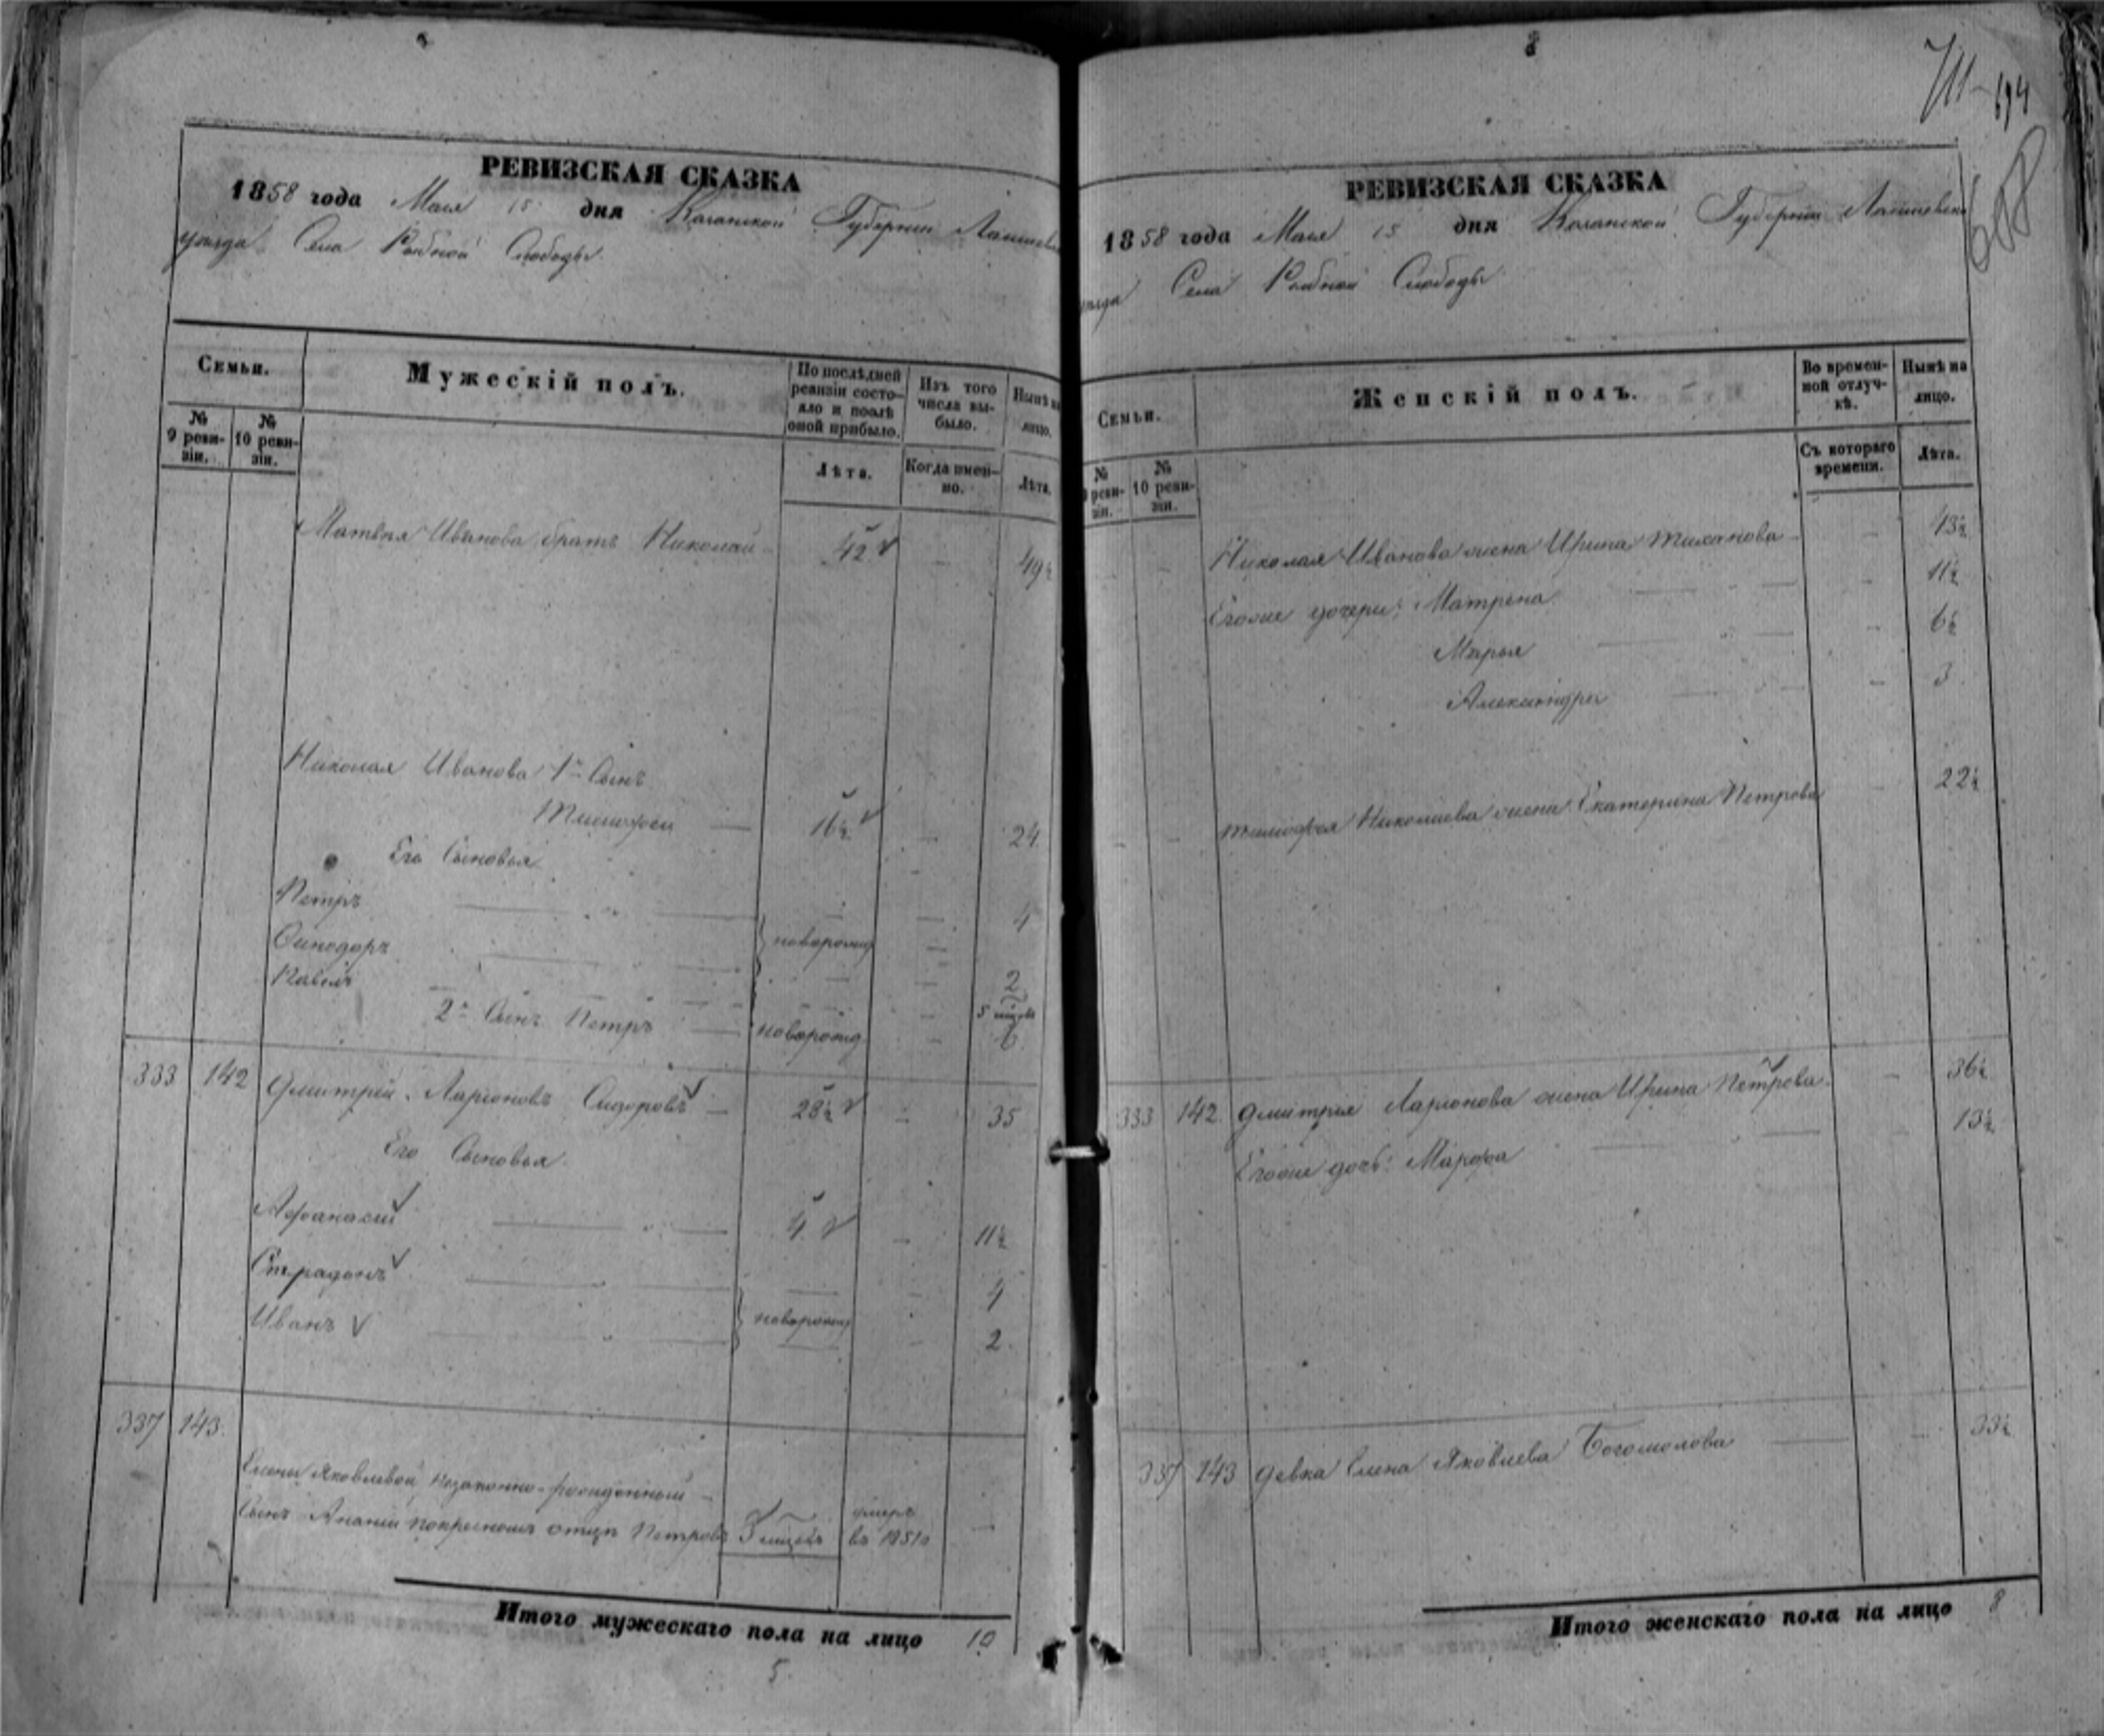 РЕВИЗСКАЯ СКАЗКА
1858 года Мая 15 дня Казанской Губернии Лаишевс
уезда Села Рыбной Слободы
Семьи.
Мужескій полъ.
По послѣдней ревизіи состояло и послѣ оной прибыло.
Изъ того числа выбыло.
Нынѣ на лицо.
№ 9 ревизіи.
№ 10 ревизіи.
Лѣта.
Когда именно.
Лѣта.
Матвея Иванова братъ Николай 42 — 49½
Николая Иванова 1й Сынъ
Тимофей 16½ — 24
Его Сыновья
Петръ — 4
новорожд
Павелъ
2
5
2й Сынъ Петръ новорожд — 6
333 142 Дмитрий Ларионовъ Сидоровъ 28½ — 35
Его Сыновья
Афанасий 4 — 11½
4
Иванъ новорожд — 2
337 143
Елены Яковлевой незаконно-рожденный
Сынъ Ананий покрестному отцу Петровъ умеръ в 1851
Итого мужескаго пола на лицо 10
5
711
694
698
РЕВИЗСКАЯ СКАЗКА
1858 года Мая 15 дня Казанской Губернии Лаишевск
уезда Села Рыбной Слободы
Семьи.
Женскій полъ.
Во временной отлучкѣ.
Нынѣ на лицо.
№ 9 ревизіи.
№ 10 ревизіи.
Съ котораго времени.
Лѣта.
Николая Иванова жена Ирина — 43½
Егоже дочери: Матрена — 11½
Марья — 6½
Александра — 3
Тимофея Николаева жена Екатерина Петрова — 22½
333 142 Дмитрия Ларионова жена Ирина Петрова — 36½
Егоже дочь: Марфа — 13½
337 143 Девка Елена Яковлева Богомолова — 33½
Итого женскаго пола на лицо 8